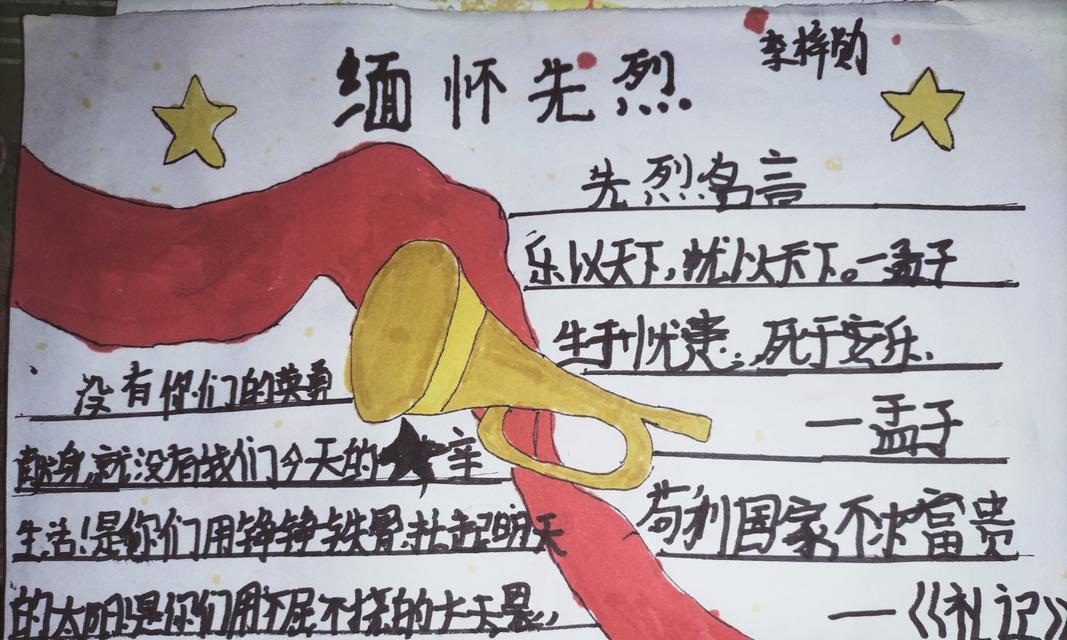 缅怀先烈
李梓勋
先烈名言
乐以天下，忧以天下。一孟子
生于忧患，死于安乐.
一孟子
苟利国家不求富贵
一《礼记》
没有你们的英勇
献身,就没有我们今天的幸
生活!是你们用铮铮铁骨,扛起明天
的太阳!是你们用不屈不挠的